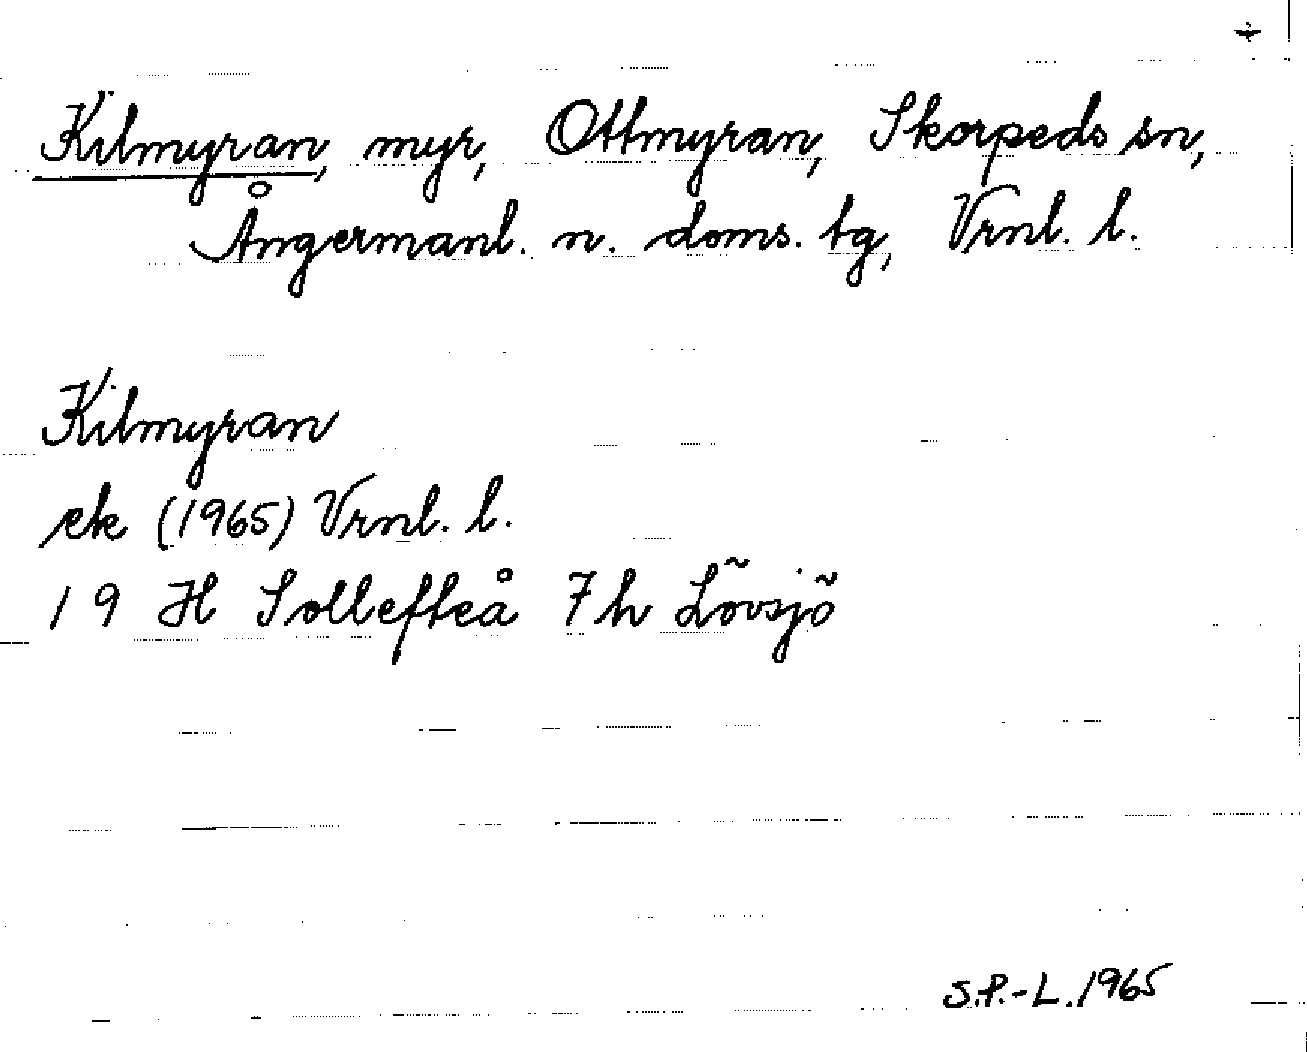 Kilmyran, myr, Ottmyran, Skorpeds sn,
Ångermanl. n. doms. tg, Vrnl. l.
Kilmyran
ek (1965) Vrnl. l.
19 H Sollefteå 7h Lövsjö
S.P.-L. 1965